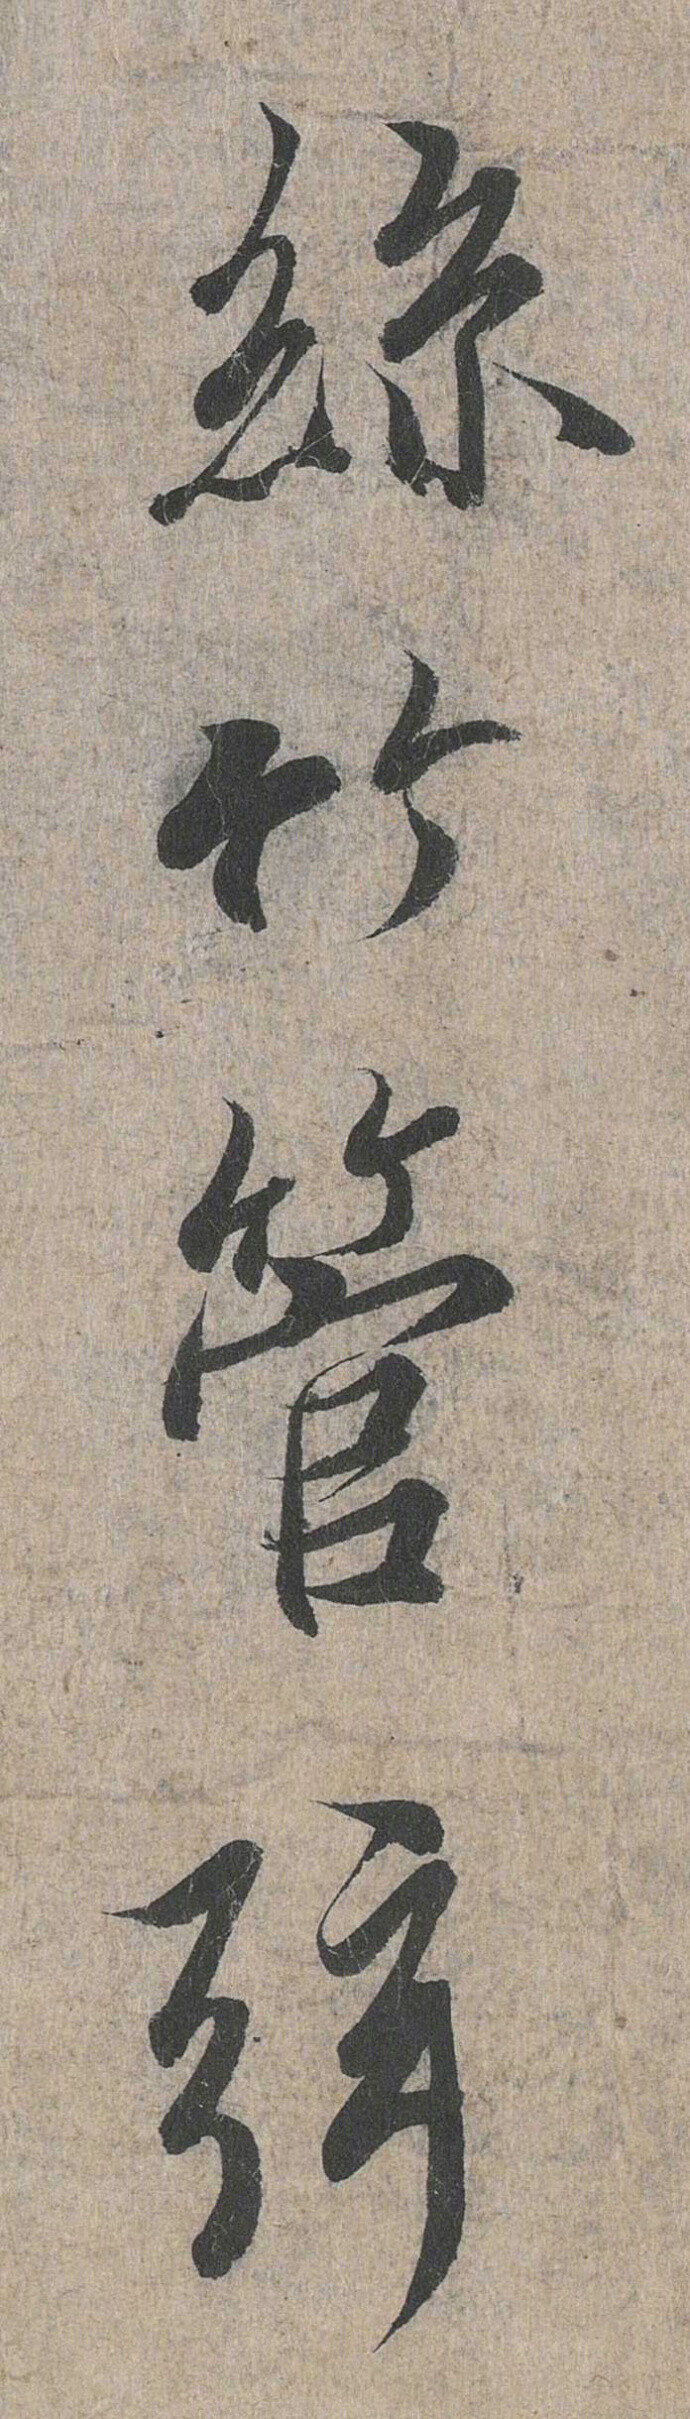 絲竹管弦